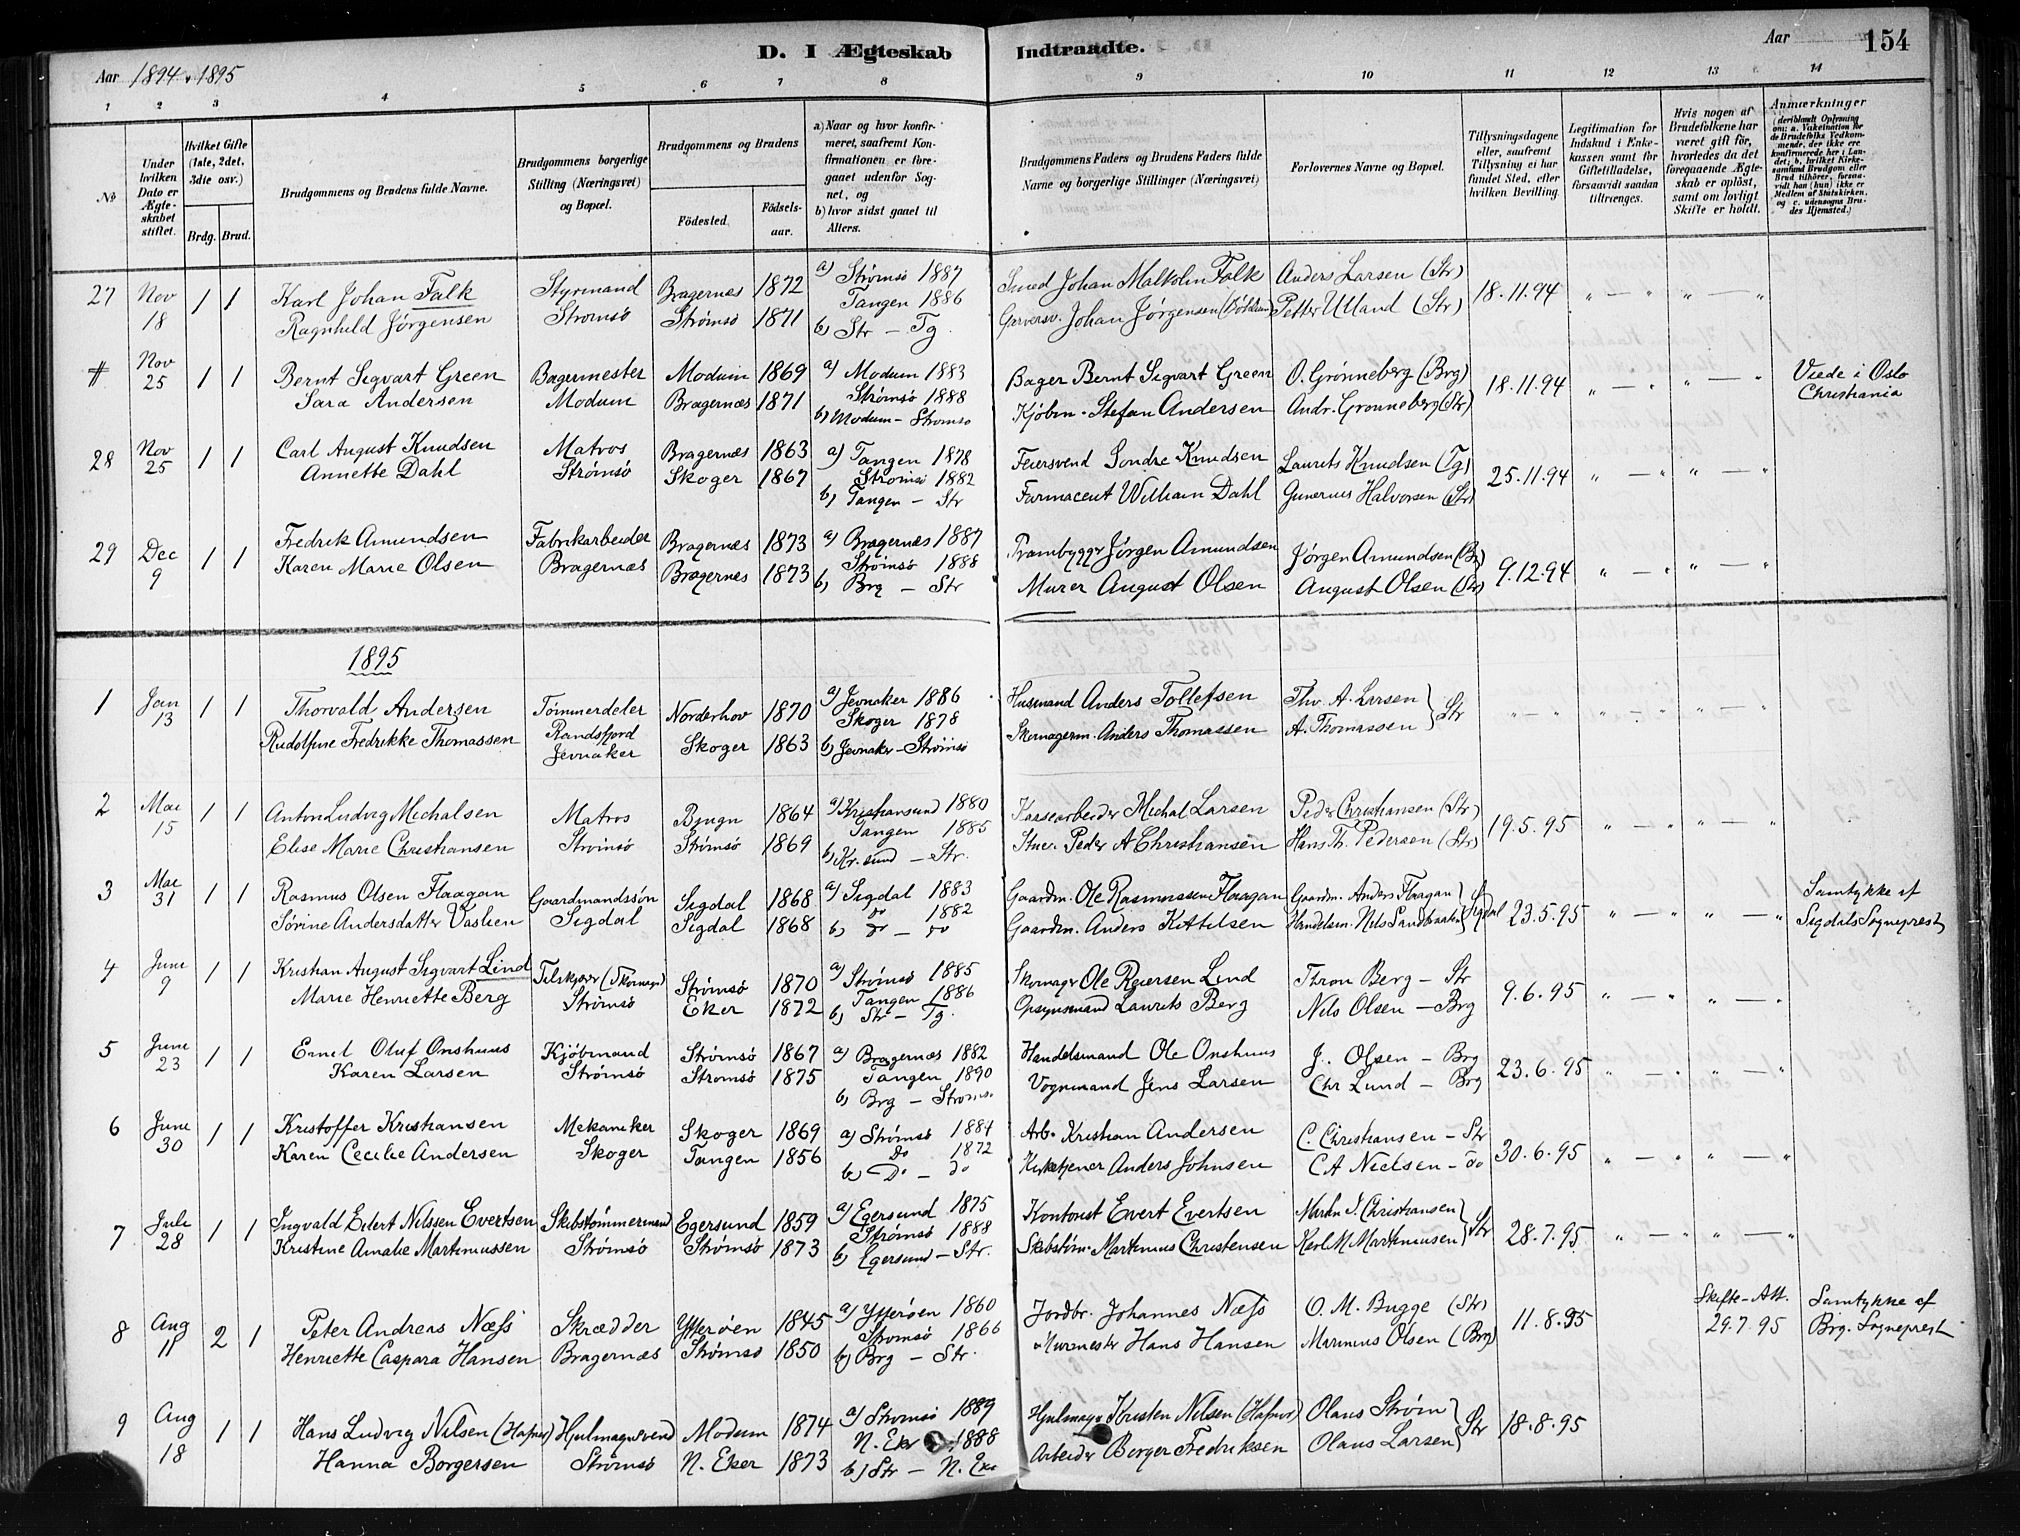 D. I Ægteskab Indtraadte.
Aar 1894 & 1895
Aar 154
1 2 3 4 5 6 7 8 9 10 11 12 13 14
No
Under hvilken Dato er Ægteskabet stiftet.
Hvilket Gifte (1ste, 2det, 3die osv.)
Brdg. Brud.
Brudgommens og Brudens fulde Navne.
Brudgommens borgerlige Stilling (Næringsvei) og Bopæl.
Brudgommens og Brudens
Fødested.
Fødsels-aar.
a) Naar og hvor konfirmeret, saafremt Konfirmationen er foregaaet udenfor Sognet, og
b) hvor sidst gaaet til Alters.
Brudgommens Faders og Brudens Faders fulde Navne og borgerlige Stillinger (Næringsvei)
Forlovernes Navne og Bopæl.
Tillysningsdagene eller, saafremt Tillysning ei har fundet Sted, efter hvilken Bevilling.
Legitimation for Indskud i Enkekassen samt for Giftetilladelse, forsaavidt saadan tiltrænges.
Hvis nogen af Brudefolkene har været gift før, hvorledes da det foregaaende Ægteskab er opløst, samt om lovligt Skifte er holdt.
Anmærkninger (deriblandt Oplysning om: a. Vakcination for de Brudefolks Vedkommende, der ikke ere konfirmerede her i Landet; b. hvilket Kirkesamfund Brudgom eller Brud tilhører, forsaavidt han (hun) ikke er Medlem af Statskirken, og c. udensogns Brudes Hjemsted.)
27 Nov 18 1 1 Karl Johan Falk Styrmand Bragernes 1872 a) Strømsø 1887 Smed Johan Malkolm Falk Anders Larsen (Str) 18.11.94 " — " " — "
Ragnhild Jørgensen Strømsø Strømsø 1871 Tangen 1886 Garversv. Johan Jørgensen Petter Ulland (Str)
b) Str — Tg.
# Nov 25 1 1 Bernt Sigvart Green Bagermester Modum 1869 a) Modum 1883 Bager Bernt Sigvart Green O. Grønneberg (Brg) 18.11.94 " — " " — " Viede i Oslo
Sara Andersen Modum Bragernæs 1871 Strømsø 1888 Kjøbm. Stefan Andersen Andr. Gronneberg (Str) Christiania
b) Modum — Strømsø
28 Nov 25 1 1 Carl August Knudsen Matros Bragernæs 1863 a) Tangen 1878 Feiersvend Sondre Knudsen Laurits Knudsen (Tg) 25.11.94 " — " " — "
Annette Dahl Strømsø Skoger 1867 Strømsø 1882 Farmaceut William Dahl Gunerius Halvorsen (Str)
b) Tangen — Str
29 Dec 9 1 1 Fredrik Amundsen Fabrikarbeider Bragernæs 1873 a) Bragernæs 1887 Prambygger Jørgen Amundsen Jørgen Amundsen (Br) 9.12.94 " — " " — "
Karen Marie Olsen Bragernæs Bragernes 1873 Strømsø 1888 Murer August Olsen August Olsen (Str)
b) Brg — Str
1895
1 Jan 13 1 1 Thorvald Andersen Tømmerdeler Norderhov 1870 a) Jevnaker 1886 Husmand Anders Tollefsen Thv. A. Larsen } Str " — " " — " " — "
Rudolfine Fredrikke Thomassen Randsfjord Skoger 1863 Skoger 1878 Skernagerm. Anders Thomassen A. Thomassen
Jevnaker b) Jevnakr — Strømsø
2 Mai 15 1 1 Anton Ludvig Michalsen Matros Bjugn 1864 a) Kristiansund 1880 Michal Larsen Peder Christiansen (Str) 19.5.95 " — " " — "
Elise Marie Christiansen Strømsø Strømsø 1869 Tangen 1885 Stuer. Peder A Christiansen Hans Th. Pedersen (Str)
b) Kr.sund — Str.
3 Mai 31 1 1 Rasmus Olsen Flaagan Gaardmandssøn Sigdal 1868 a) Sigdal 1883 Gaardm. Ole Rasmussen Flaagan Gaardm. Anders Flaagan } Sigdal 23.5.95 " — " " — " Samtykke af
Sørine Andersdatter Vaslien Sigdal Sigdal 1868 do 1882 Gaardm. Anders Kittilsen Handelsm. Nils Sandbraaten Sigdals Sogneprest
b) do — do
4 June 9 1 1 Kristian August Sigvart Lind Tilskjærer (Skomager) Strømsø 1870 a) Strømsø 1885 Skomager Ole Reiersen Lind Thron Berg — Str 9.6.95 " — " " — "
Marie Henriette Berg Strømsø Eker 1872 Tangen 1886 Opsynsmand Laurits Berg Nils Olsen — Brg
b) Str — Tg.
5 June 23 1 1 Emil Oluf Onshuus Kjøbmand Strømsø 1867 a) Bragernæs 1882 Handelsmand Ole Onshuus J. Olsen — Brg 23.6.95 " — " " — "
Karen Larsen Strømsø Strømsø 1875 Tangen 1890 Vognmand Jens Larsen Chr Lund — Brg
b) Brg — Strøms.
6 June 30 1 1 Kristoffer Kristiansen Mekaniker Skoger 1869 a) Strømsø 1884 Arb. Kristian Andersen C. Christiansen — Str 30.6.95 " — " " — "
Karen Cecilie Andersen Skoger Tangen 1856 Do 1872 Kirketjener Anders Johnsen C A Nielsen — do
b) Do — do
7 Juli 28 1 1 Ingvald Eilert Nilssen Evertsen Skibstømmermand Egersund 1859 a) Egersund 1875 Kontorist Evert Evertsen Martin J. Christiansen } Str 28.7.95 " — " " — "
Kristine Amalie Martiniussen Strømsø Strømsø 1873 Strømsø 1888 Skibstøm. Martinius Christensen Karl M Martiniusen
b) Egersund — Str.
8 Aug 11 2 1 Peter Andreas Næss Skrædder Ytterøen 1845 a) Ytterøen 1860 Jordbr. Johannes Næss O. M. Bugge (Str) 11.8.95 Skifte-Att. Samtykke af
Henriette Caspara Hansen Bragernæs Strømsø 1850 Strømsø 1866 Murmester Hans Hansen Marinius Olsen (Brg) 29.7.95 Brg. Sogneprest
b) Brg — Str.
9 Aug 18 1 1 Hans Ludvig Nilsen (Hafnor) Hjulmagersvend Modum 1874 a) Strømsø 1889 Hjulmagr Kristen Nilsen (Hafnor) Olaus Strøm } Str 18.8.95
Hanna Borgersen Strømsø N. Eker 1873 N. Eker 1888 Arbeider Berger Fredriksen Olaus Larsen
b) Str — N. Eke